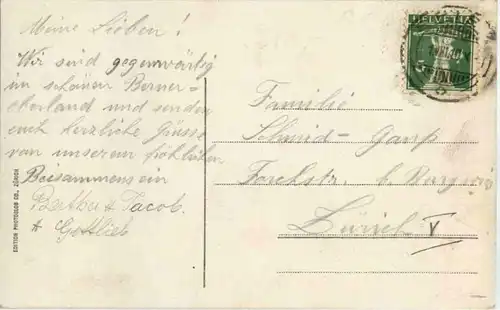 Meine Lieben!
Wir sind gegenwärtig
im schönen Berner=
oberland und senden
euch herzliche Grüsse
von unserem fröhlichen
Beisammensein
Bertha & Jacob.
& Gottlieb
EDITION PHOTOGLOB CO., ZÜRICH
HELVETIA
Familie
Schmid-
Forchstr. b.
Zürich V